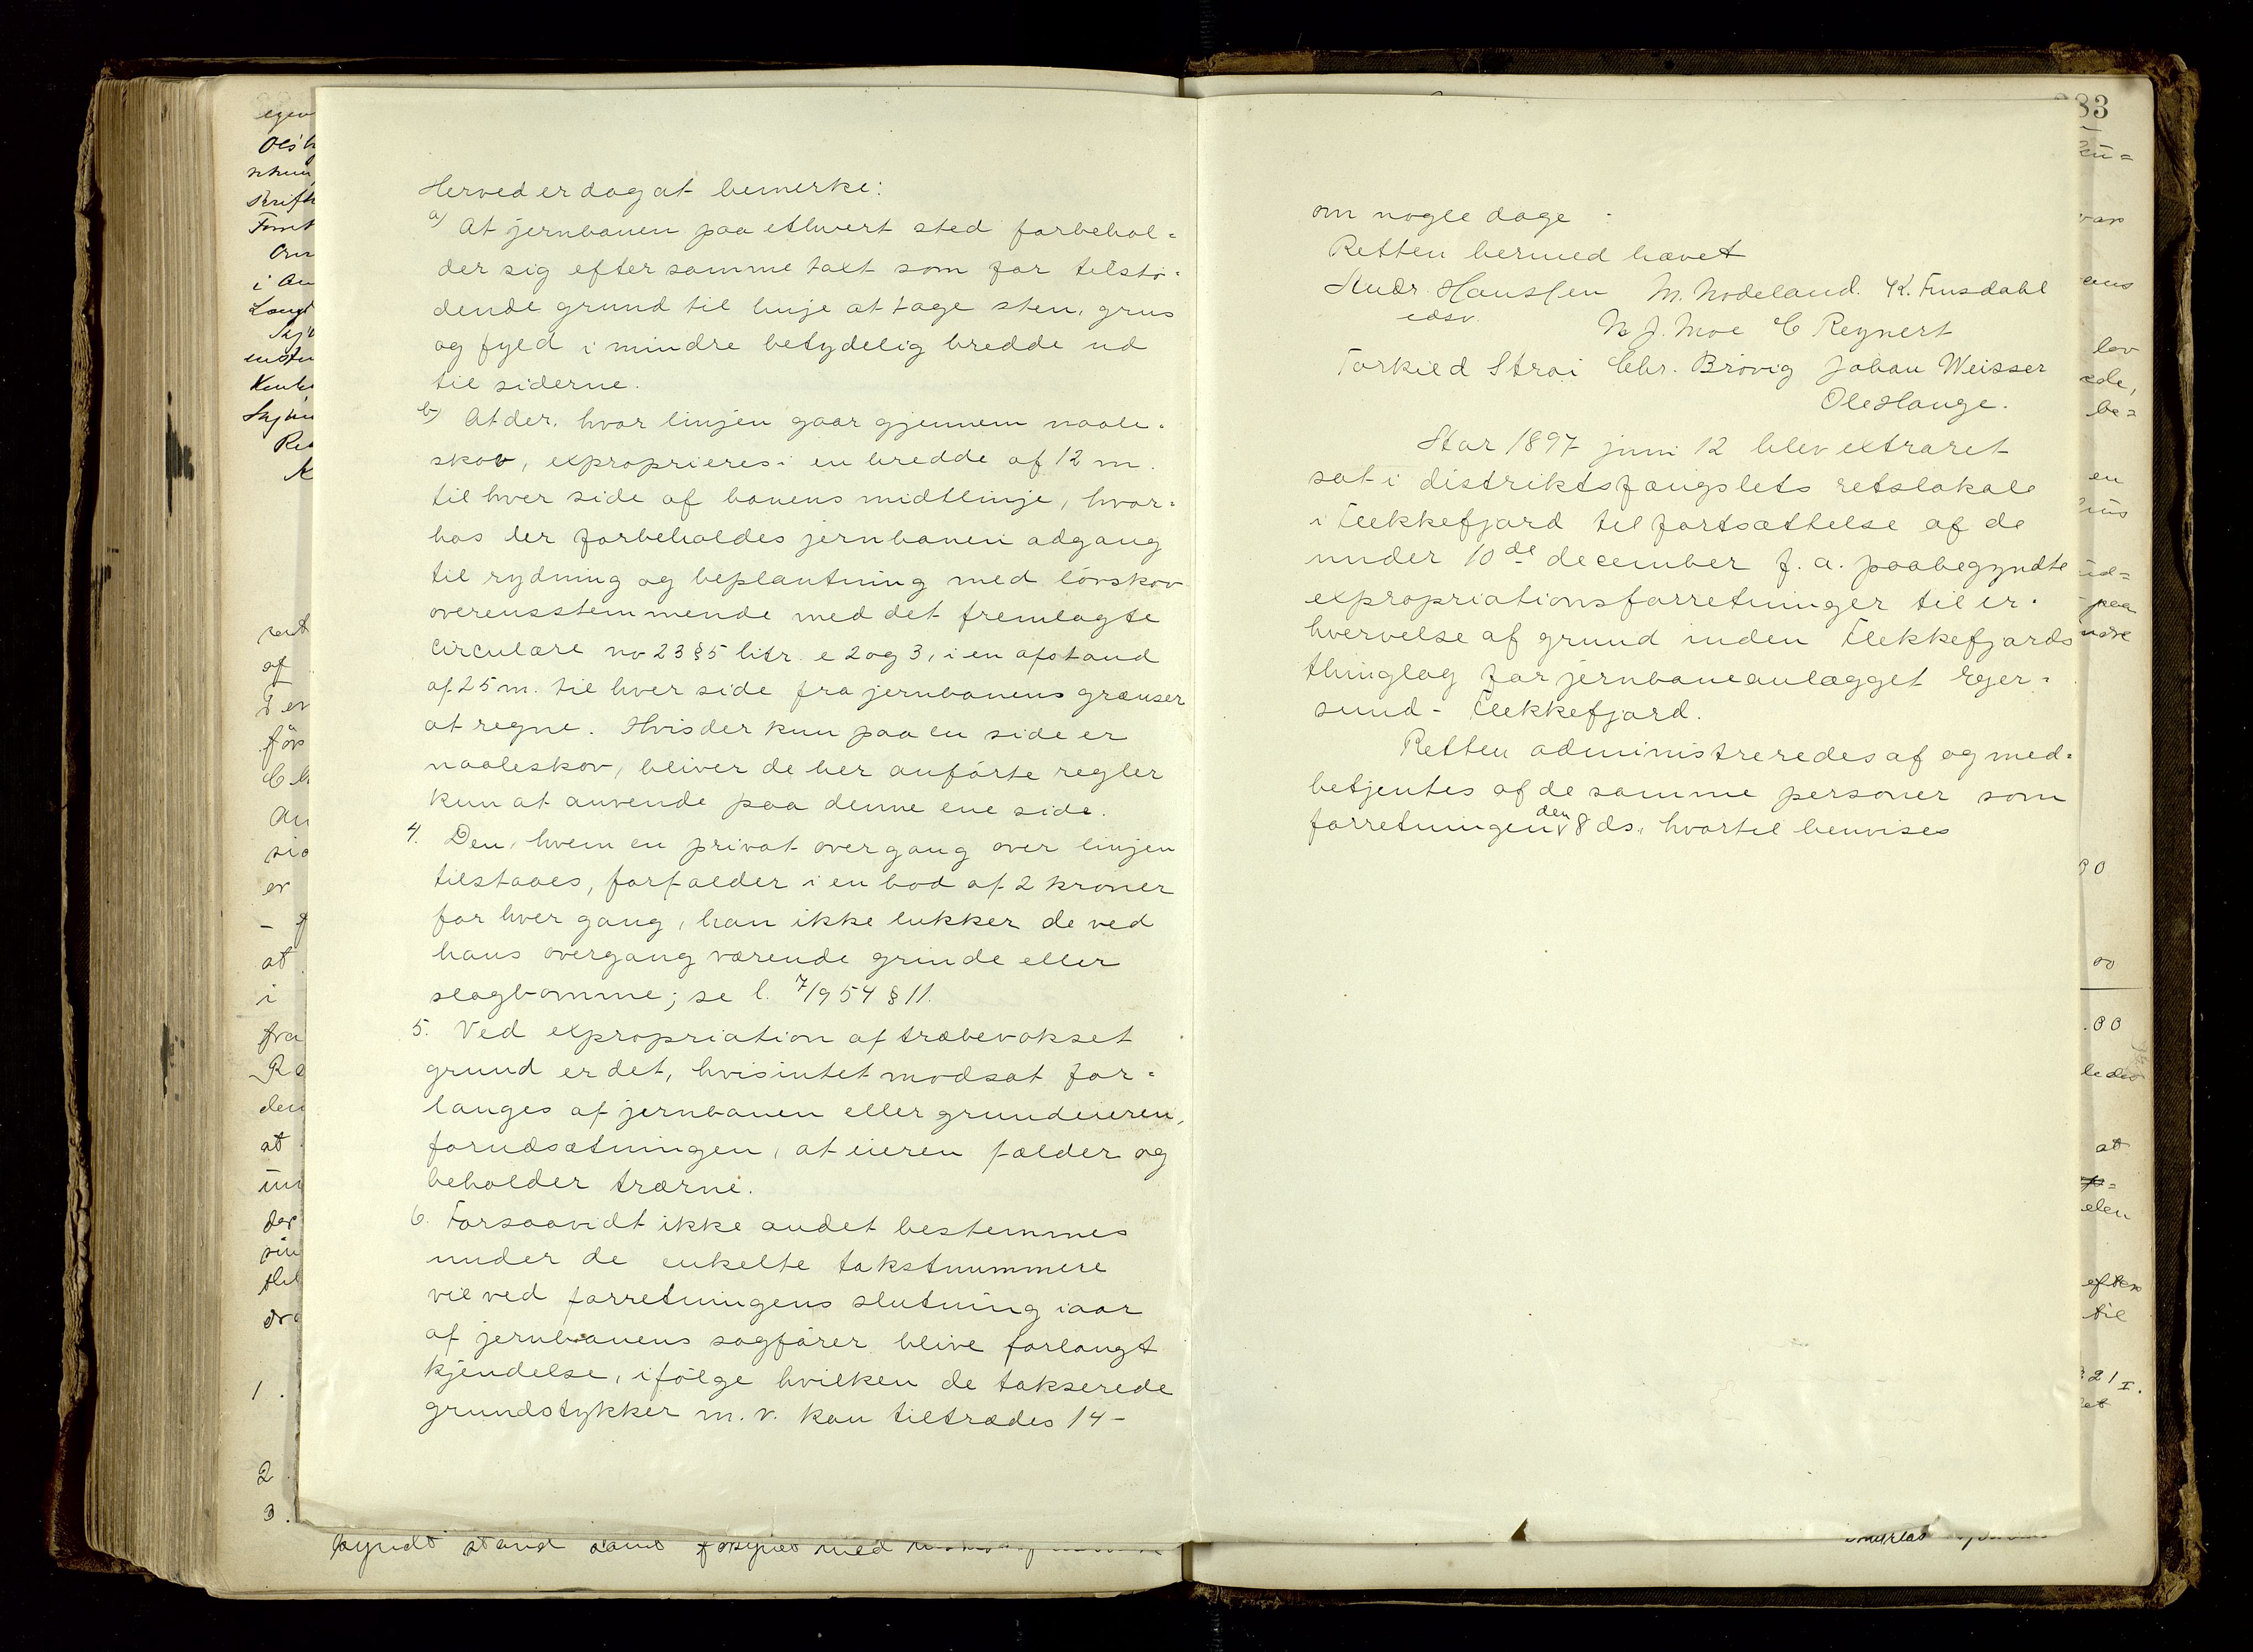 Herved er dog at bemerke:
a) At jernbanen paa ethvert sted forbehol=
der sig efter samme taxt som for tilstö=
dende grund til linje at tage sten, grus
og fyld i mindre betydelig bredde ud
til siderne.
b) At der, hvor linjen gaar gjennem naale=
skov, exproprieres i en bredde af 12 m.
til hver side af banens midtlinje, hvor=
hos der forbeholdes jernbanen adgang
til rydning og beplantning med lövskov
overensstemmende med det fremlagte
circulære no 23 § 5 litr. e 2 og 3, i en afstand
af 25 m. til hver side fra jernbanens grænser
at regne. Hvis der kun paa en side er
naaleskov, bliver de her anförte regler
kun at anvende paa denne ene side.
4. Den, hvem en privat overgang over linjen
tilstaaes, forfalder i en bod af 2 kroner
for hver gang, han ikke lukker de ved
hans overgang værende grinde eller
slagbomme; se l. 7/9 54 § 11.
5. Ved expropriation af træbevokset
grund er det, hvis intet modsat for=
langes af jernbanen eller grundeieren,
forudsætningen, at eieren fælder og
beholder trærne.
6. Forsaavidt ikke andet bestemmes
under de enkelte takstnummere
vil ved forretningens slutning iaar
af jernbanens sagförer blive forlangt
kjendelse, ifölge hvilken de takserede
grundstykker m. v. kan tiltrædes 14-
83
om nogle dage.
Retten hermed hævet
Andr. Hanssen M. Nodeland. K. Finsdahl
edsv. N J. Moe C Reynert
Torkild Stroi Chr. Brövig Johan Weisser
Ole Hauge.
Aar 1897 juni 12 blev extraret
sat i distriktsfængslets retslokale
i Flekkefjord til fortsættelse af de
under 10de december f. a. paabegyndte
expropriationsforretninger til er=
hvervelse af grund inden Flekkefjords
thinglag for jernbaneanlægget Eger=
sund - Flekkefjord.
Retten administreredes af og med=
betjentes af de samme personer som
forretningen den 8 ds., hvortil henvises